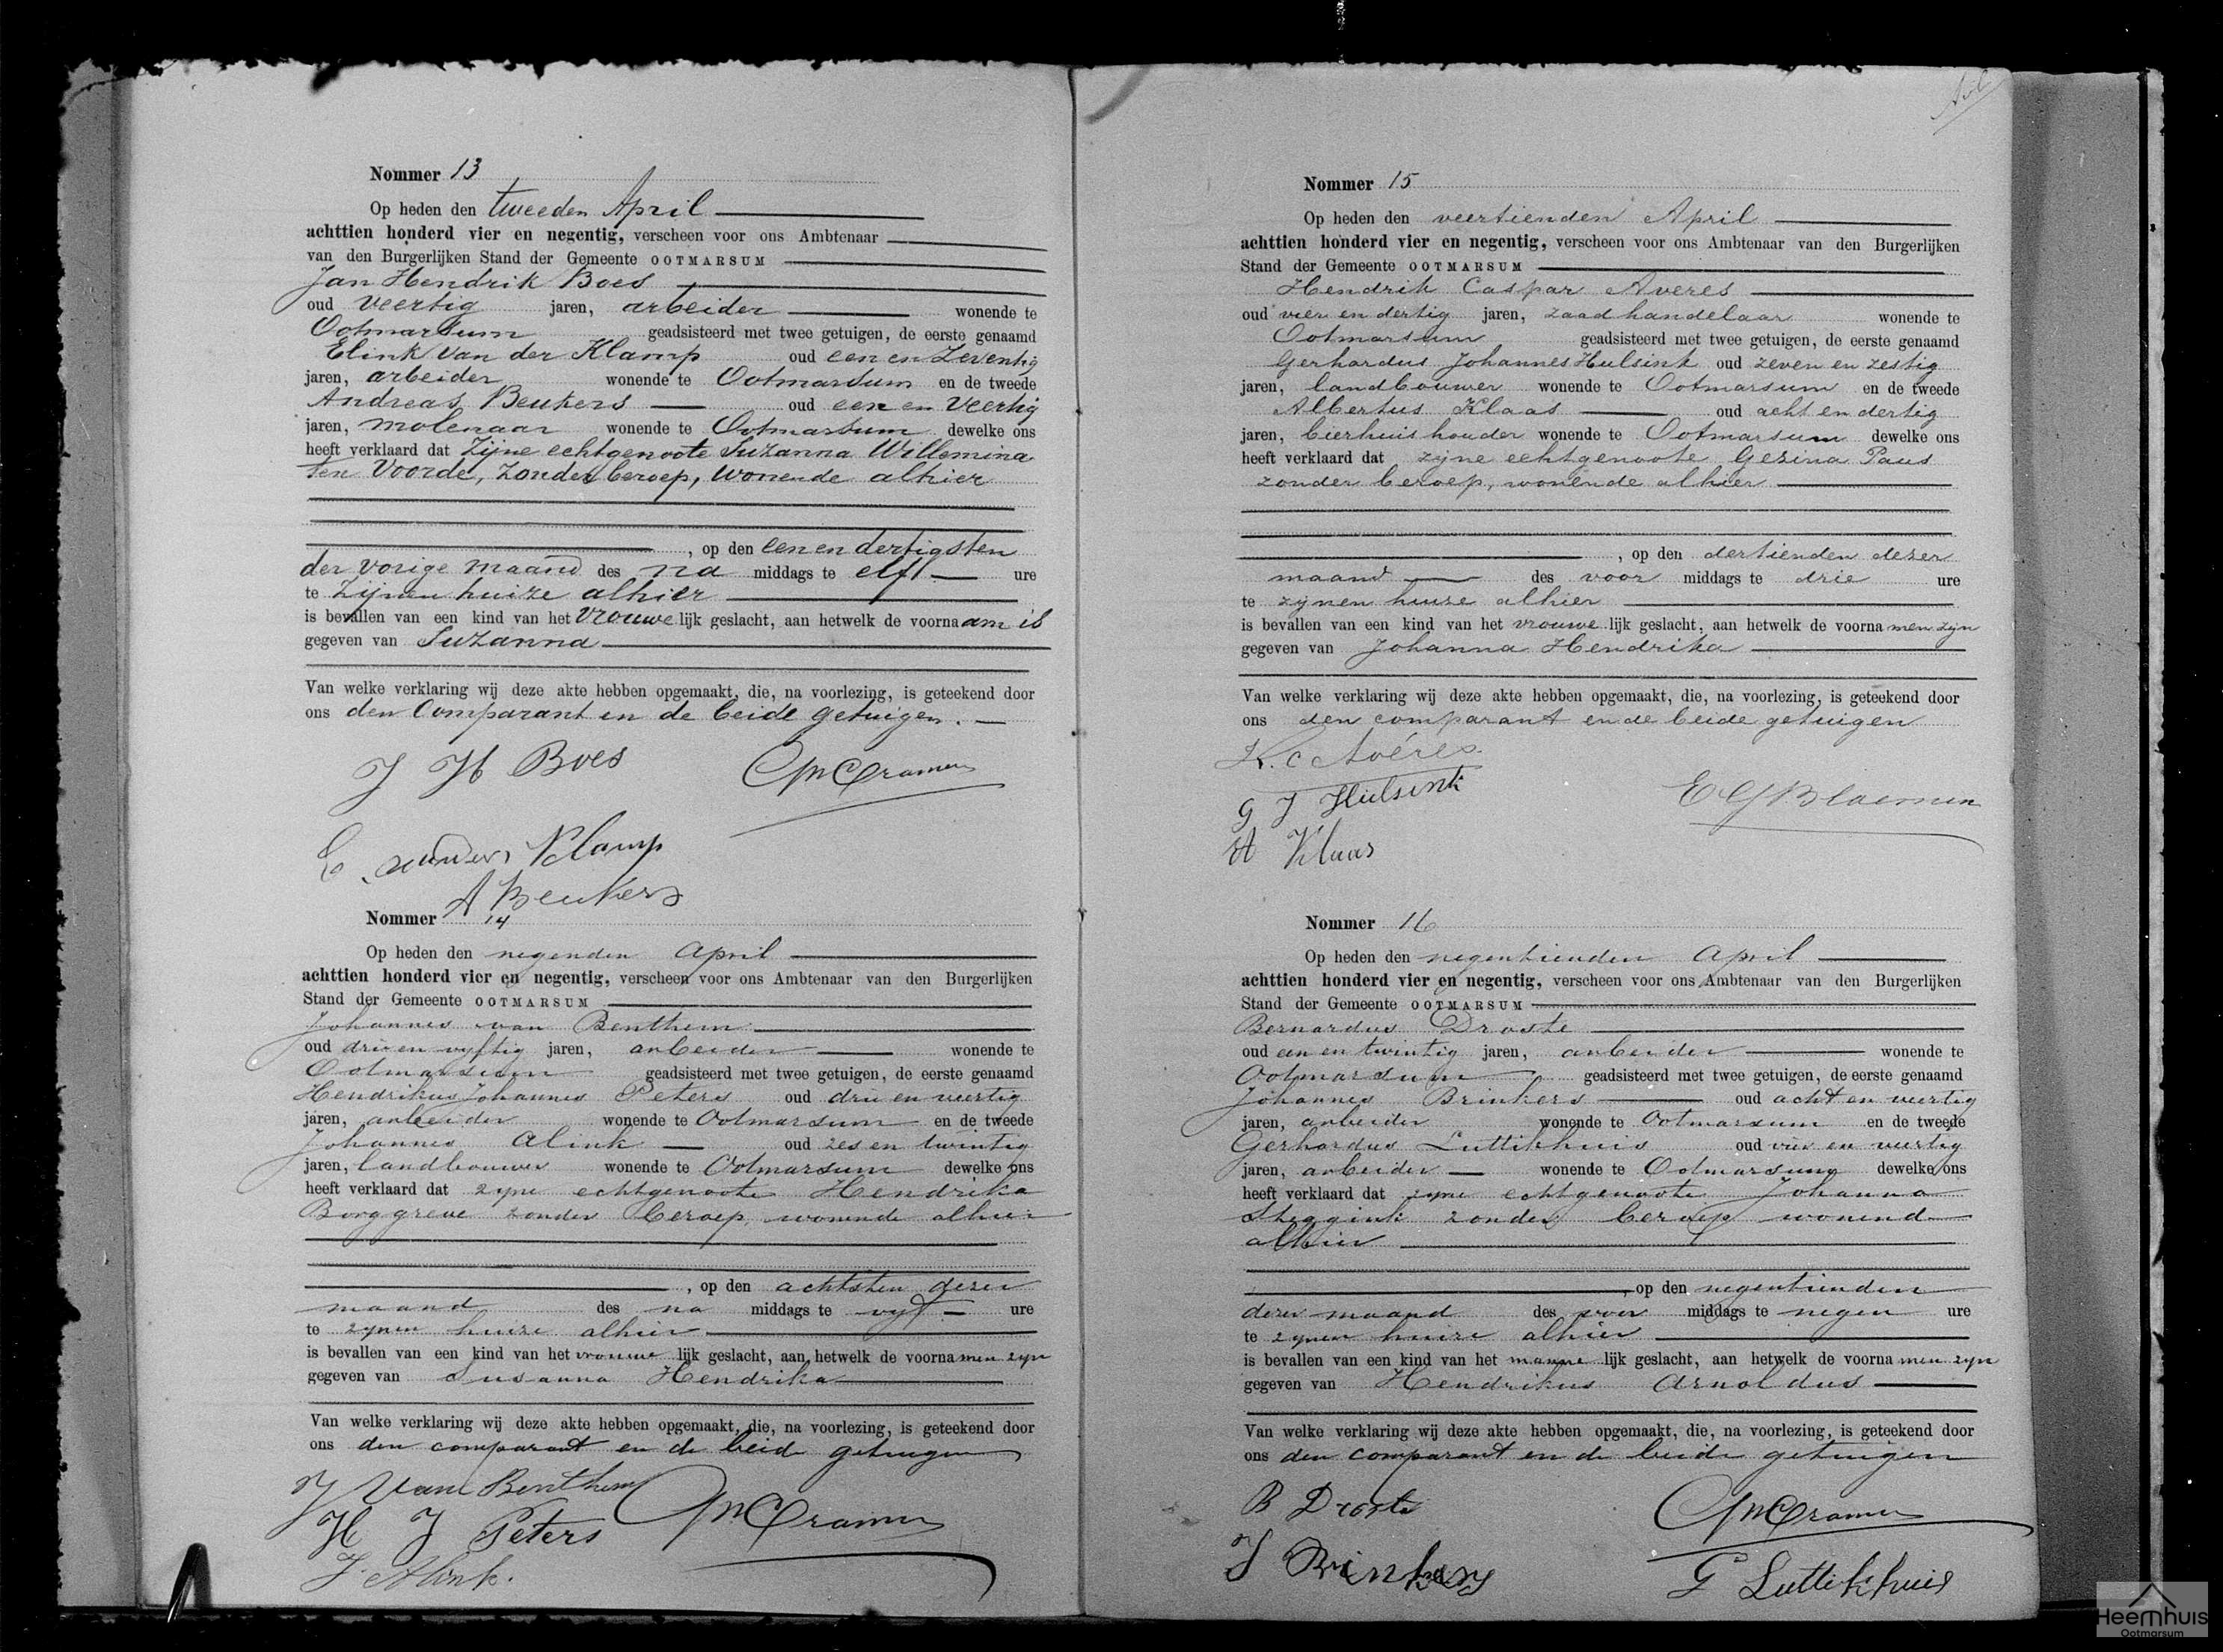 Nommer 13
Op heden den tweeden April
achttien honderd vier en negentig, verscheen voor ons Ambtenaar
van den Burgerlijken Stand der Gemeente OOTMARSUM
Jan Hendrik Boes
oud veertig jaren, arbeider wonende te
Ootmarsum geadsisteerd met twee getuigen, de eerste genaamd
Elink van der Klamp oud een en zeventig
jaren, arbeider wonende te Ootmarsum en de tweede
Andreas Beukers oud een en veertig
jaren, molenaar wonende te Ootmarsum dewelke ons
heeft verklaard dat zijne echtgenoote Suzanna Willemina
ten Voorde, zonder beroep, wonende alhier
, op den een en dertigsten
der vorige maand des na middags te elf ure
te zijnen huize alhier
is bevallen van een kind van het vrouwelijk geslacht, aan hetwelk de voornaam is
gegeven van Suzanna
Van welke verklaring wij deze akte hebben opgemaakt, die, na voorlezing, is geteekend door
ons den Comparant en de beide getuigen.
J H Boes
Cramer
E. van der Klamp
A Beukers
Nommer 14
Op heden den negenden April
achttien honderd vier en negentig, verscheen voor ons Ambtenaar van den Burgerlijken
Stand der Gemeente OOTMARSUM
Johannes van Benthem
oud drie en vyftig jaren, arbeider wonende te
Ootmarsum geadsisteerd met twee getuigen, de eerste genaamd
Hendrikus Johannes Peters oud drie en veertig
jaren, arbeider wonende te Ootmarsum en de tweede
Johannes Alink oud zes en twintig
jaren, landbouwer wonende te Ootmarsum dewelke ons
heeft verklaard dat zyne echtgenoote Hendrika
Borggreve zonder beroep, wonende alhier
, op den achtsten dezer
maand des na middags te vyf ure
te zynen huize alhier
is bevallen van een kind van het vrouwelijk geslacht, aan hetwelk de voornamen zyn
gegeven van Susanna Hendrika
Van welke verklaring wij deze akte hebben opgemaakt, die, na voorlezing, is geteekend door
ons den comparant en de beide getuigen
J Van Benthem
Cramer
H J Peters
J Alink.
Nommer 15
Op heden den veertienden April
achttien honderd vier en negentig, verscheen voor ons Ambtenaar van den Burgerlijken
Stand der Gemeente OOTMARSUM
Hendrik Caspar Averes
oud vier en dertig jaren, zaadhandelaar wonende te
Ootmarsum geadsisteerd met twee getuigen, de eerste genaamd
Gerhardus Johannes Hulsink oud zeven en zestig
jaren, landbouwer wonende te Ootmarsum en de tweede
Albertus Klaas oud acht en dertig
jaren, bierhuishouder wonende te Ootmarsum dewelke ons
heeft verklaard dat zijne echtgenoote Gesina Paus
zonder beroep, wonende alhier
, op den dertienden dezer
maand des voor middags te drie ure
te zijnen huize alhier
is bevallen van een kind van het vrouwelijk geslacht, aan hetwelk de voornamen zijn
gegeven van Johanna Hendrika
Van welke verklaring wij deze akte hebben opgemaakt, die, na voorlezing, is geteekend door
ons den comparant en de beide getuigen
H. C Avéres
G J Hulsink
E G Bloemen
A Klaas
Nommer 16
Op heden den negentienden April
achttien honderd vier en negentig, verscheen voor ons Ambtenaar van den Burgerlijken
Stand der Gemeente OOTMARSUM
Bernardus Droste
oud een en twintig jaren, arbeider wonende te
Ootmarsum geadsisteerd met twee getuigen, de eerste genaamd
Johannes Brinkers oud acht en veertig
jaren, arbeider wonende te Ootmarsum en de tweede
Gerhardus Luttikhuis oud vier en veertig
jaren, arbeider wonende te Ootmarsum dewelke ons
heeft verklaard dat zyne echtgenoote Johanna
Steggink zonder beroep wonend
alhier
, op den negentienden
dezer maand des voor middags te negen ure
te zynen huize alhier
is bevallen van een kind van het mannelijk geslacht, aan hetwelk de voornamen zyn
gegeven van Hendrikus Arnoldus
Van welke verklaring wij deze akte hebben opgemaakt, die, na voorlezing, is geteekend door
ons den comparant en de beide getuigen
B Droste
Cramer
J Brinkers
G Luttikhuis
Heemhuis
Ootmarsum